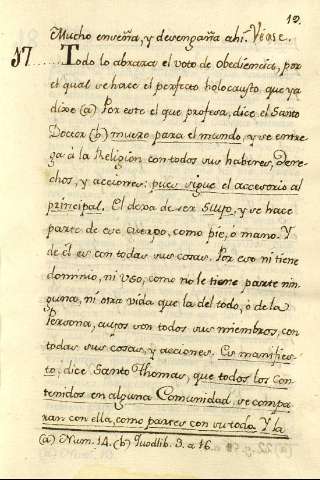 12.
Mucho enseña, y desengaña ahi. Vease.
57..... Todo lo abraza el voto de obediencia, por
el qual se hace el perfecto holocausto, que ya
dixe (a) Por este el que profesa, dice el Santo
Doctor (b) muere para el mundo, y se entre
ga à la Religion con todos sus haberes, dere
chos, y acciones: pues sigue el accesorio al
principal. El dexa de ser suyo, y se hace
parte de ese cuerpo, como pie, o mano. Y
de él es con todas sus cosas. Por eso ni tiene
dominio, ni uso, como no le tiene parte nin
guna, ni otra vida que la del todo, ò de la
Persona, cuyos son todos sus miembros, con
todas sus cosas, y acciones. Es manifies
to, dice Santo Thomas, que todos los con
tenidos en alguna Comunidad, se compa
ran con ella, como partes con su todo. Y la
(a) Num. 14. (b) Quodlib. 3. a 16.